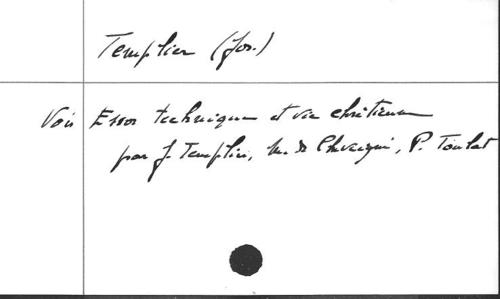 Templier (Jos.)
Voir Essor technique et vie chrétienne
par J. Templier, M. de Chevigni, P. Toulat